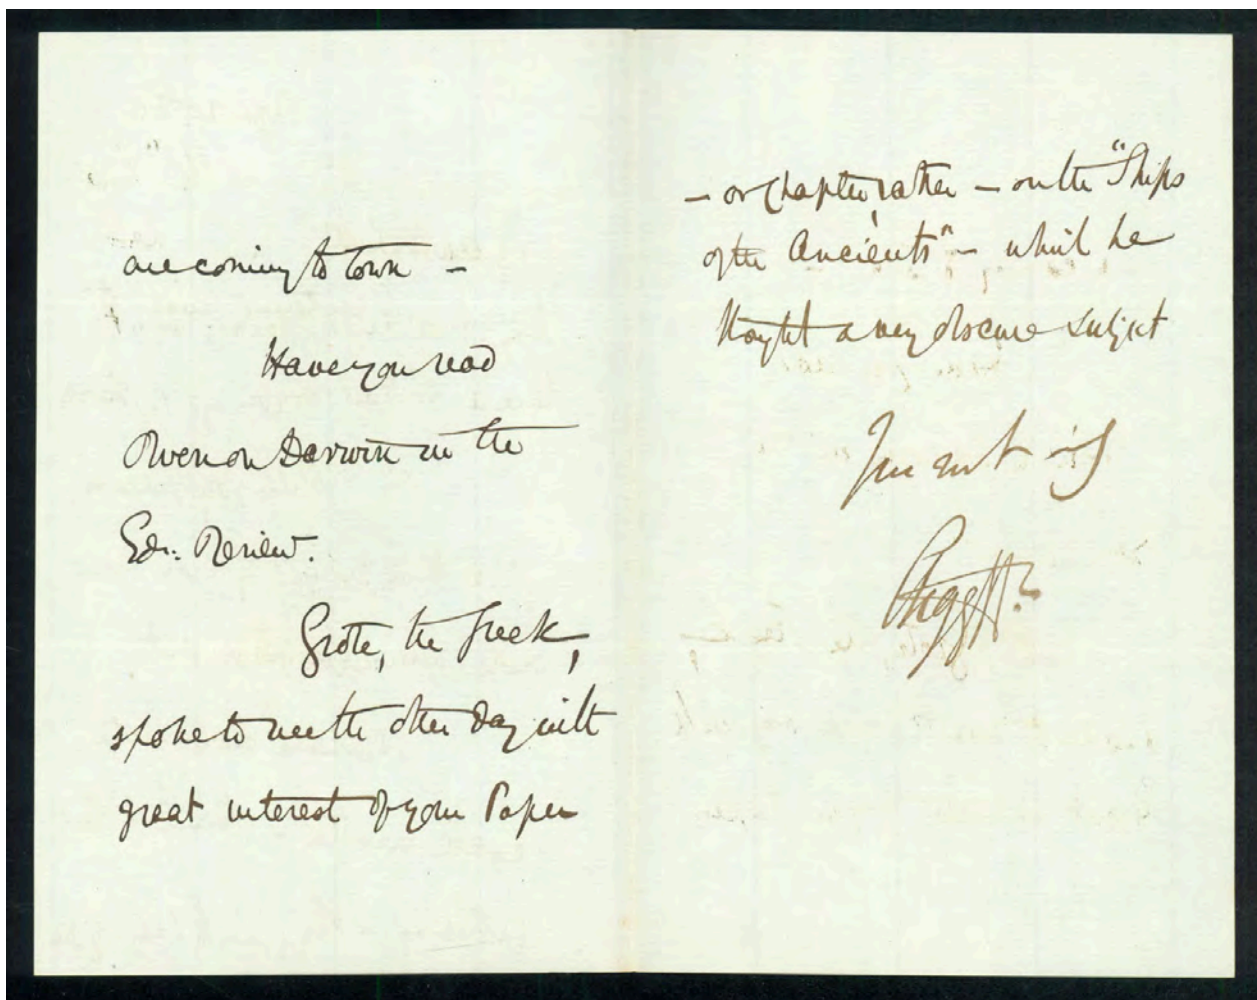 are coming to town –
Have you read
Owen on Darwin in the
Edn: Review.
Grote, the Greek,
spoke to me the other day with
great interest of your Paper
– or Chapter, rather – on the "Ships
of the Ancients" – which he
thought a very obscure subject